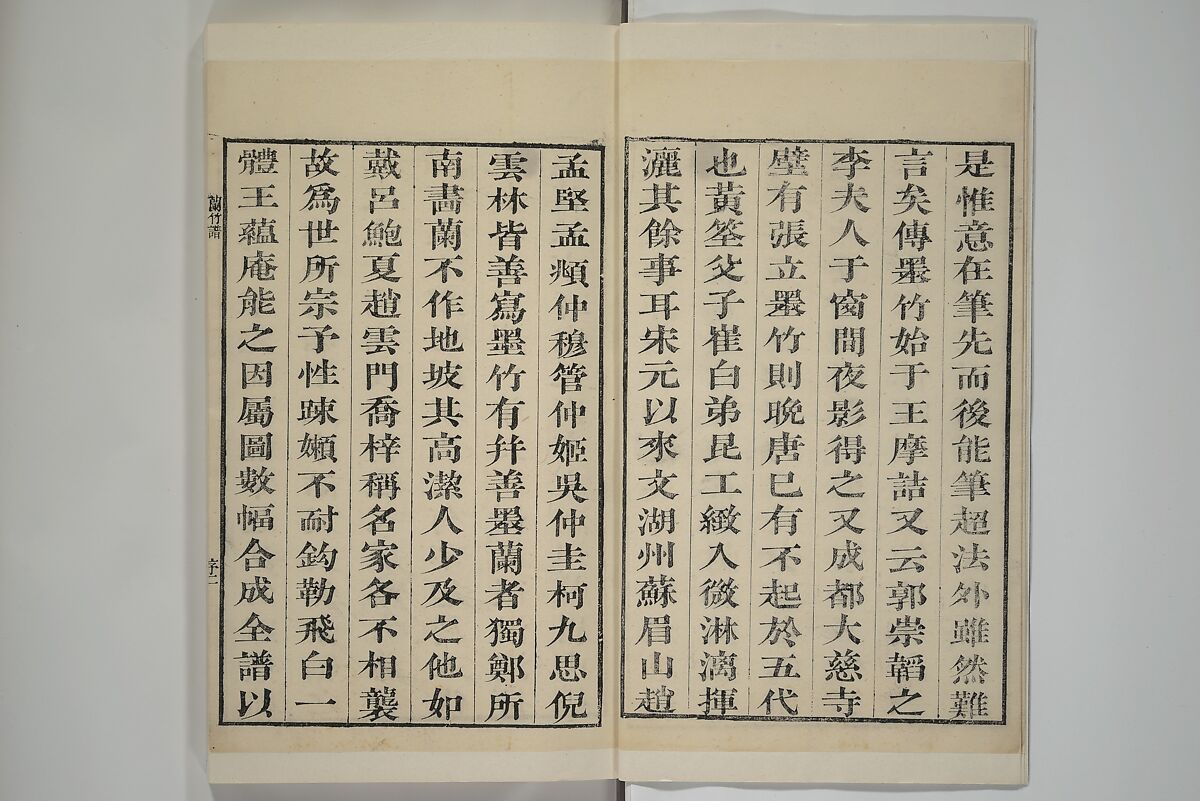 是惟意在筆先而後能筆超法外雖然難
言矣傳墨竹始于王摩詰又云郭崇韜之
李夫人于窗間夜影得之又成都大慈寺
壁有張立墨竹則晚唐已有不起於五代
也黃筌父子崔白弟昆工緻入微淋漓揮
灑其餘事耳宋元以來文湖州蘇眉山趙
孟堅孟頫仲穆管仲姬吳仲圭柯九思倪
雲林皆善寫墨竹有幷善墨蘭者獨鄭所
南畵蘭不作地坡其高潔人少及之他如
戴呂鮑夏趙雲門喬梓稱名家各不相襲
故爲世所宗予性踈嬾不耐鈎勒飛白一
體王蘊庵能之因屬圖數幅合成全譜以
蘭竹譜
序二